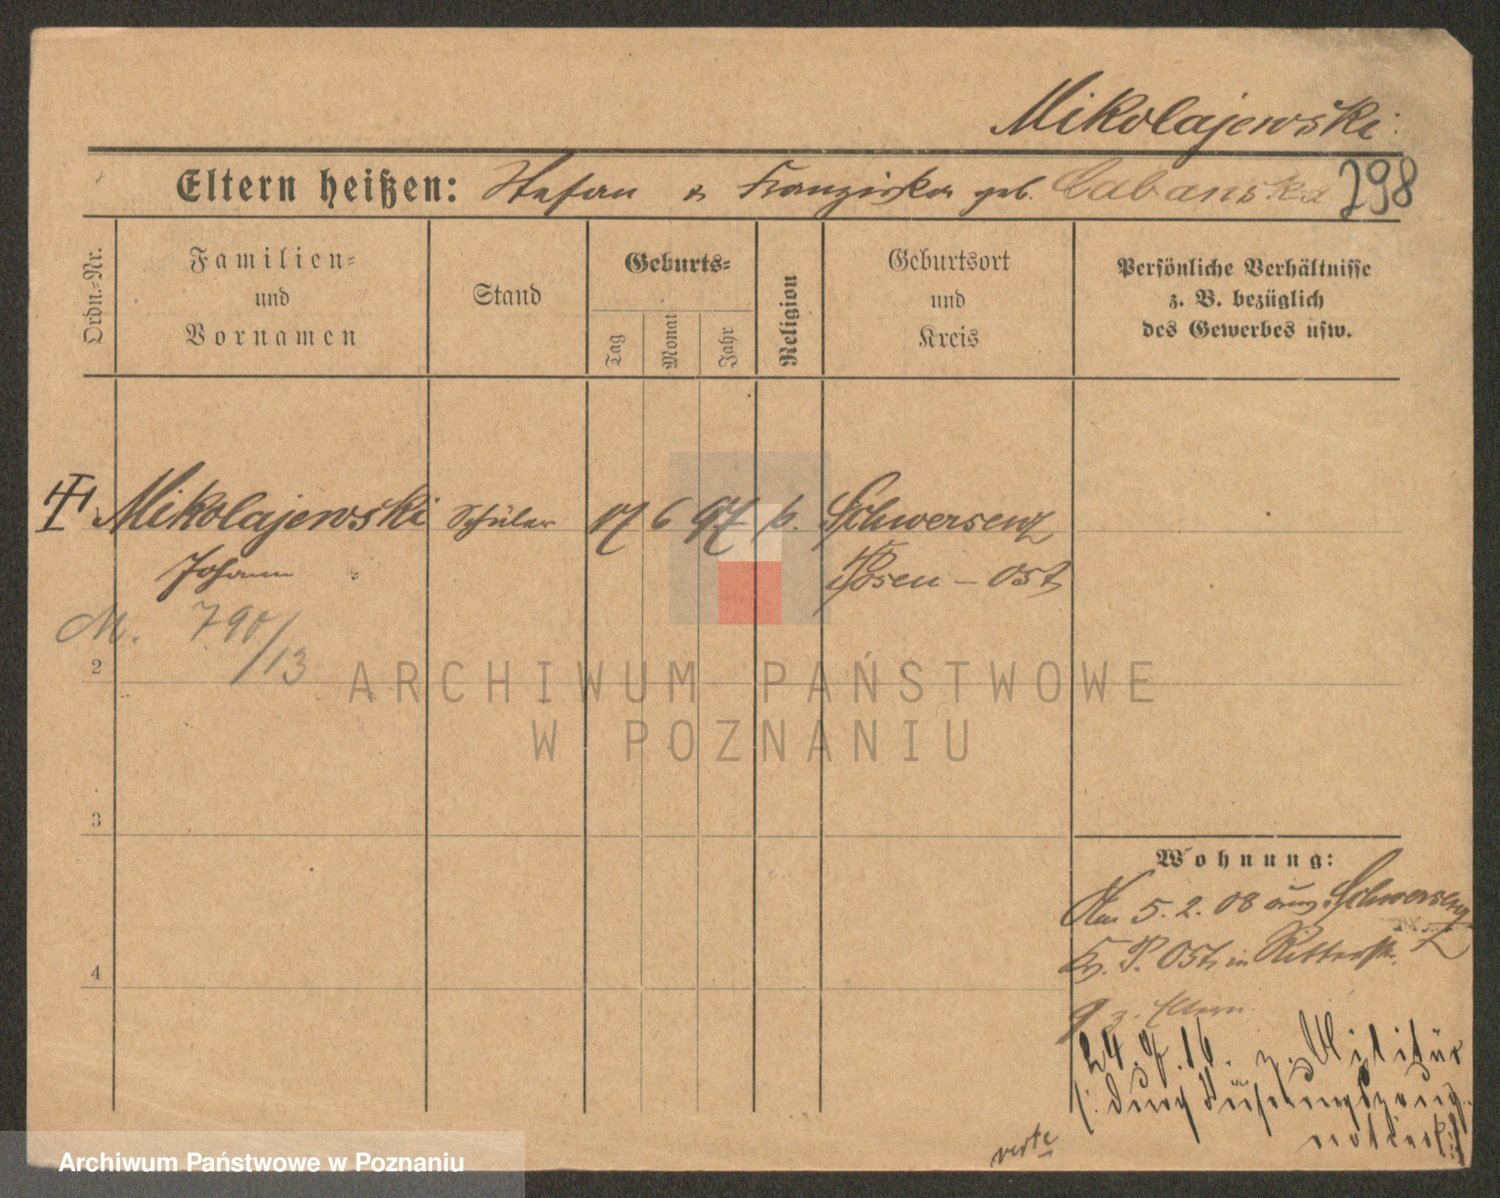 Mikolajewski
Eltern heißen: Stefan & Franziska geb. Cabanska 298
Ordn.=Nr.
Familien=
und
Vornamen
Stand
Geburts=
Tag
Monat
Jahr
Religion
Geburtsort
und
Kreis
Persönliche Verhältnisse
z. B. bezüglich
des Gewerbes usw.
Mikolajewski Schüler 17 6 97 k. Schwersenz
Johann Posen - Ost
M. 790/13
2
ARCHIWUM PAŃSTWOWE
W POZNANIU
3
Wohnung:
Am 5.2.08 aus Schwersenz
Kr. P. Ost in Ritterstr.
9 z. Eltern
4
24. 9. 16. z. Militär
durch
notiert
verte
Archiwum Państwowe w Poznaniu